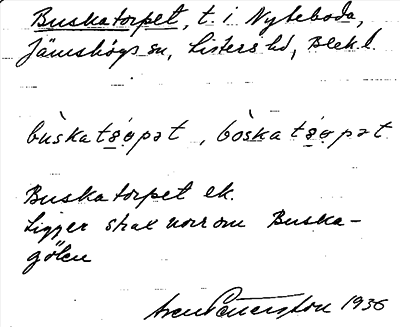 Buskatorpet, t. i Nyteboda,
Jämshögs sn, Listers hd, Blek l.
bùskatså̀pət, bòskatså̀pət
Buskatorpet ek.
Ligger strax norr om Buska-
gölen
1936